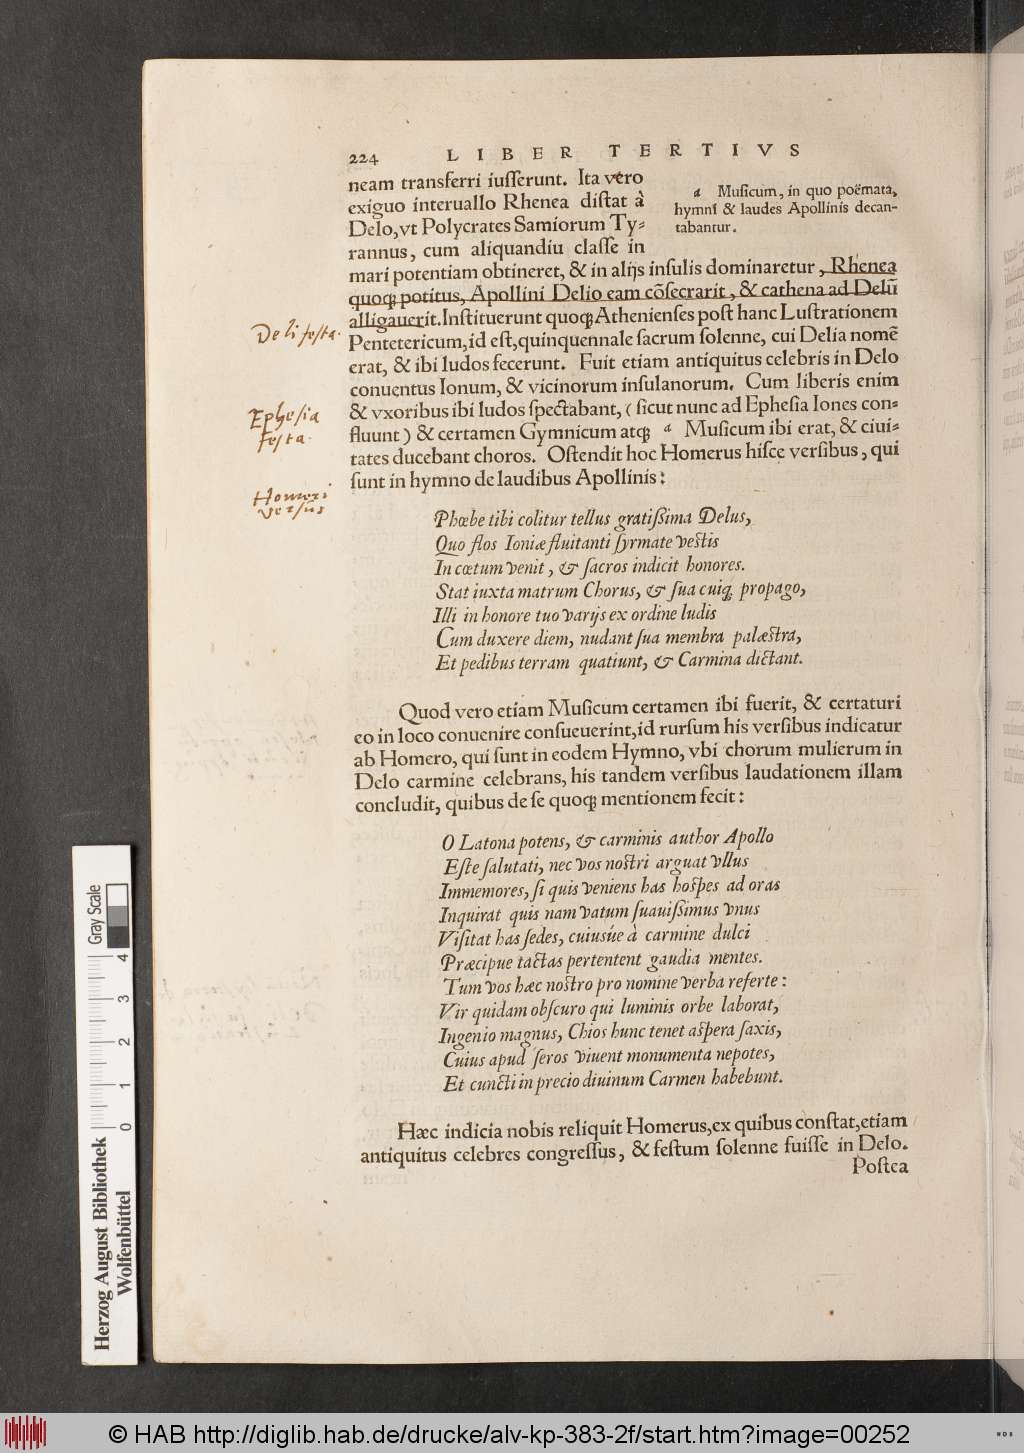 224 LIBER TERTIVS
neam transferri iuſſerunt. Ita vero
exiguo interuallo Rhenea diſtat à
Delo, vt Polycrates Samiorum Ty⸗
rannus, cum aliquandiu claſſe in
a Muſicum, in quo poëmata,
hymni & laudes Apollinis decan-
tabantur.
mari potentiam obtineret, & in alijs inſulis dominaretur, Rhenea
quoqꝫ potitus, Apollini Delio eam cõſecrarit, & cathena ad Delũ
alligauerit. Inſtituerunt quoqꝫ Athenienſes poſt hanc Luſtrationem
Pentetericum, id eſt, quinquennale ſacrum ſolenne, cui Delia nomẽ
erat, & ibi ludos fecerunt. Fuit etiam antiquitus celebris in Delo
conuentus Ionum, & vicinorum inſulanorum. Cum liberis enim
& vxoribus ibi ludos ſpectabant, (ſicut nunc ad Epheſia Iones con⸗
fluunt) & certamen Gymnicum atqꝫ a Muſicum ibi erat, & ciui⸗
tates ducebant choros. Oſtendit hoc Homerus hiſce verſibus, qui
ſunt in hymno de laudibus Apollinis:
Deli feſta.
Epheſia
feſta.
Homeri
verſus
Phœbe tibi colitur tellus gratißima Delus,
Quo flos Ioniæ fluitanti ſyrmate veſtis
In cœtum venit, & ſacros indicit honores.
Stat iuxta matrum Chorus, & ſua cuiqꝫ propago,
Illi in honore tuo varijs ex ordine ludis
Cum duxere diem, nudant ſua membra palæſtra,
Et pedibus terram quatiunt, & Carmina dictant.
Quod vero etiam Muſicum certamen ibi fuerit, & certaturi
eo in loco conuenire conſueuerint, id rurſum his verſibus indicatur
ab Homero, qui ſunt in eodem Hymno, vbi chorum mulierum in
Delo carmine celebrans, his tandem verſibus laudationem illam
concludit, quibus de ſe quoqꝫ mentionem fecit:
O Latona potens, & carminis author Apollo
Eſte ſalutati, nec vos noſtri arguat vllus
Immemores, ſi quis veniens has hoſpes ad oras
Inquirat quis nam vatum ſuauißimus vnus
Viſitat has ſedes, cuiusúe à carmine dulci
Præcipue tactas pertentent gaudia mentes.
Tum vos hæc noſtro pro nomine verba referte:
Vir quidam obſcuro qui luminis orbe laborat,
Ingenio magnus, Chios hunc tenet aſpera ſaxis,
Cuius apud ſeros viuent monumenta nepotes,
Et cuncti in precio diuinum Carmen habebunt.
Hæc indicia nobis reliquit Homerus, ex quibus conſtat, etiam
antiquitus celebres congreſſus, & feſtum ſolenne fuiſſe in Delo.
Poſtea
Herzog August Bibliothek
Wolfenbüttel
0 1 2 3 4
Gray Scale
© HAB http://diglib.hab.de/drucke/alv-kp-383-2f/start.htm?image=00252